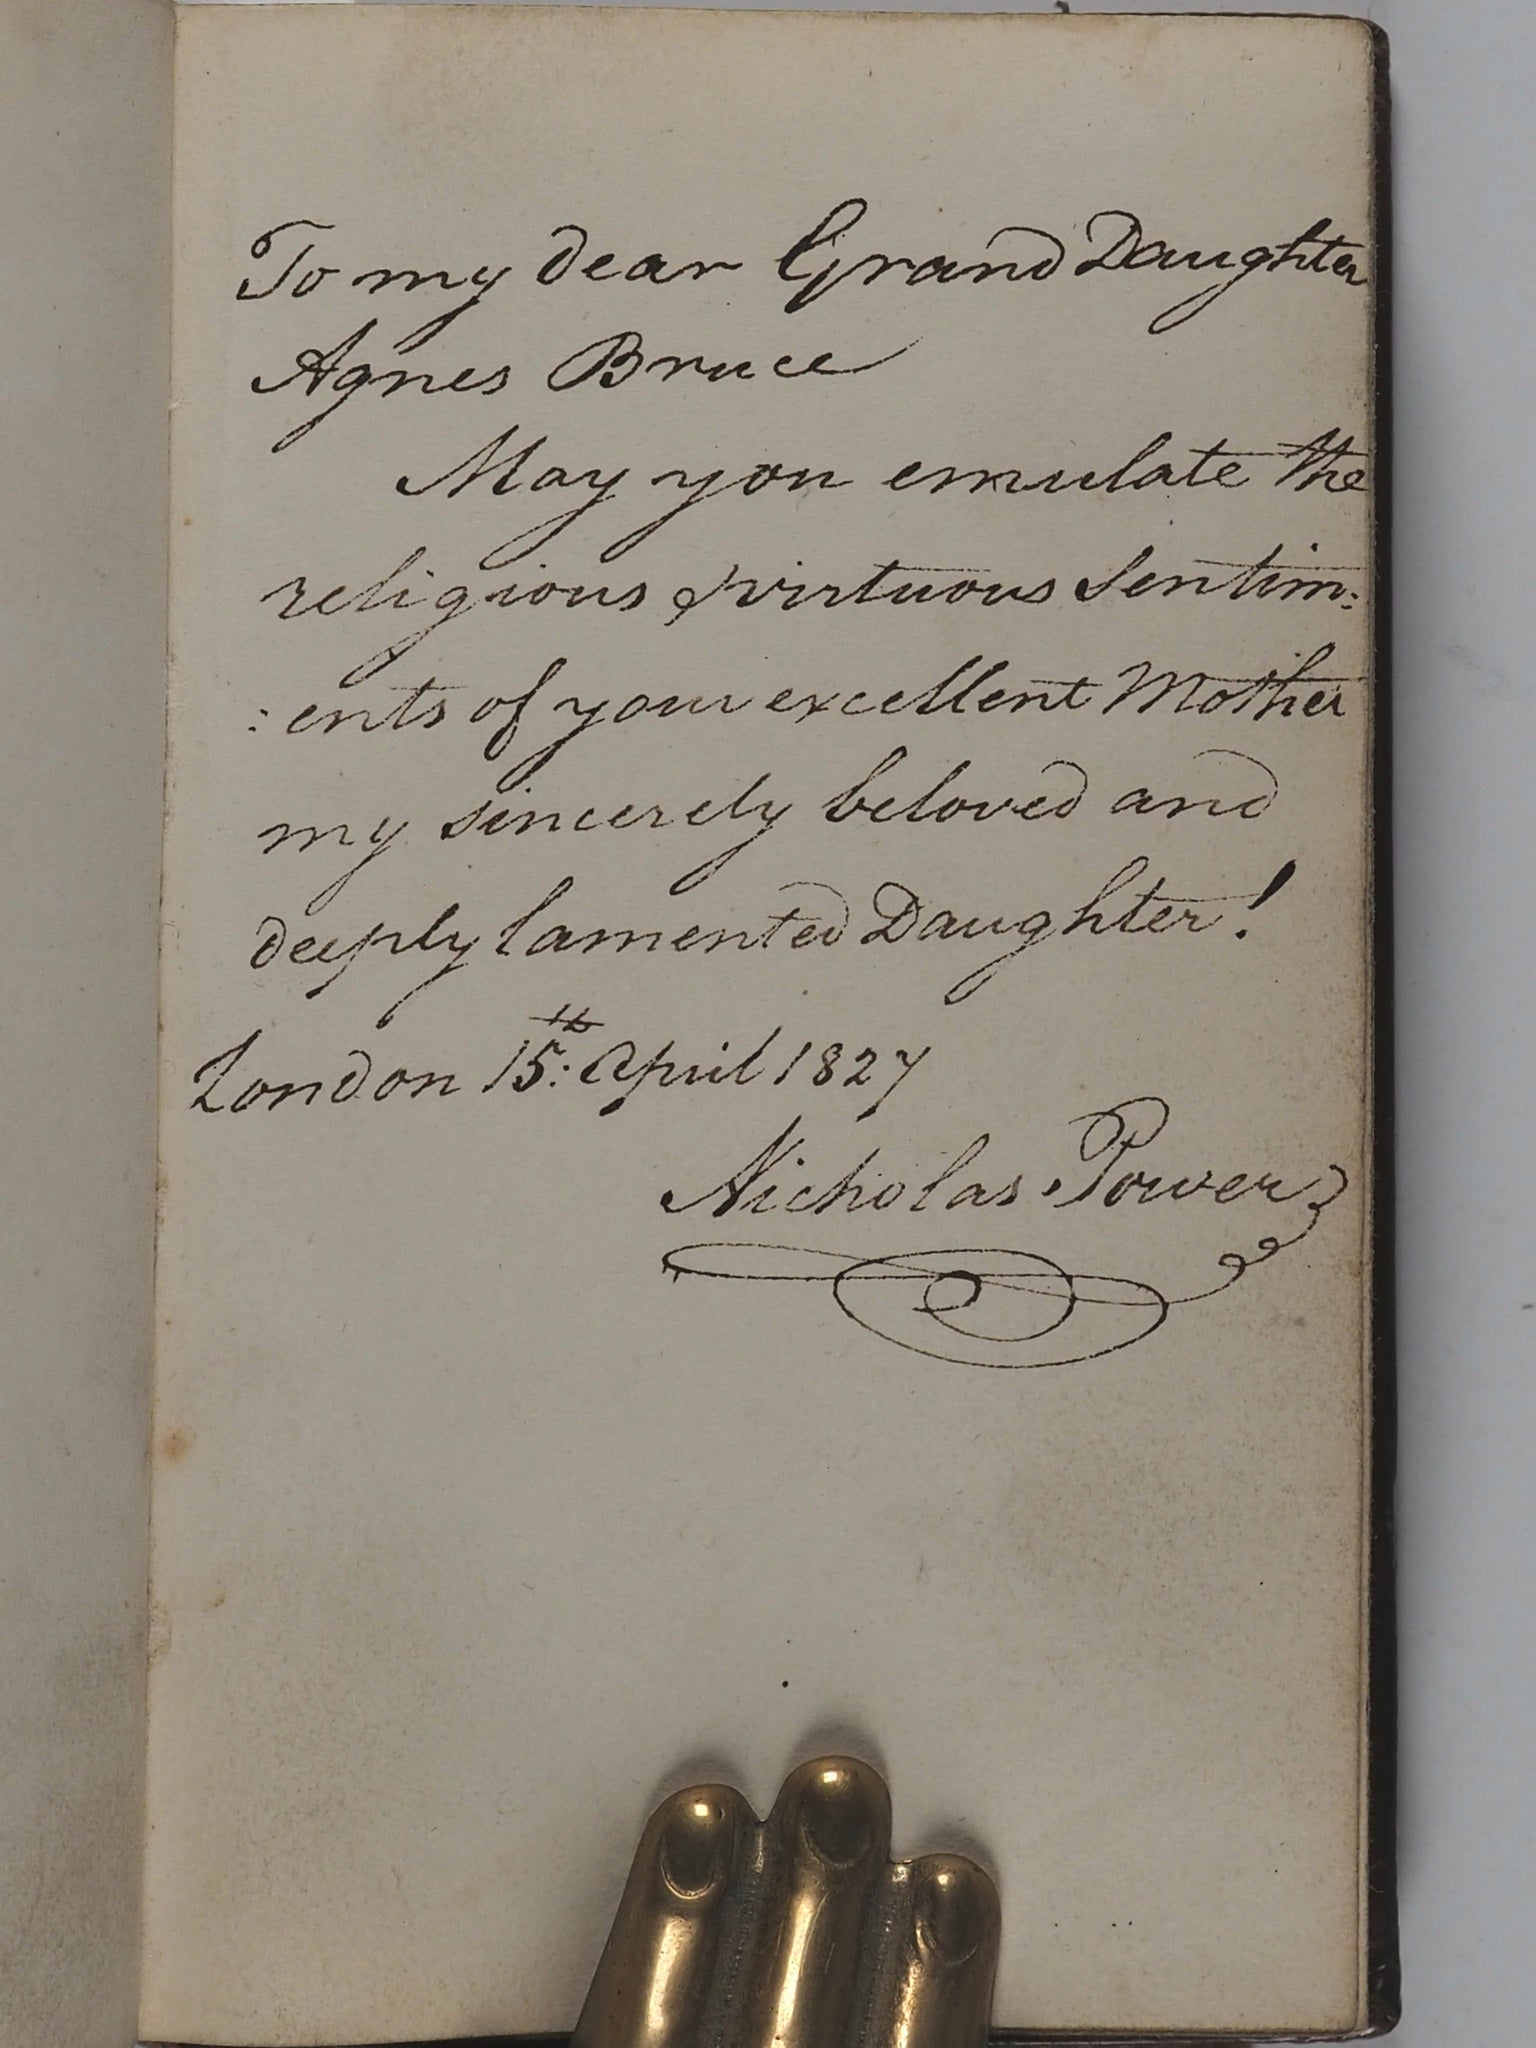 To my dear Grand Daughter
Agnes Bruce
May you emulate the
religious & virtuous Sentim:
:ents of your excellent Mother
my sincerely beloved and
deeply lamented Daughter!
London 15th: April 1827
Nicholas Power